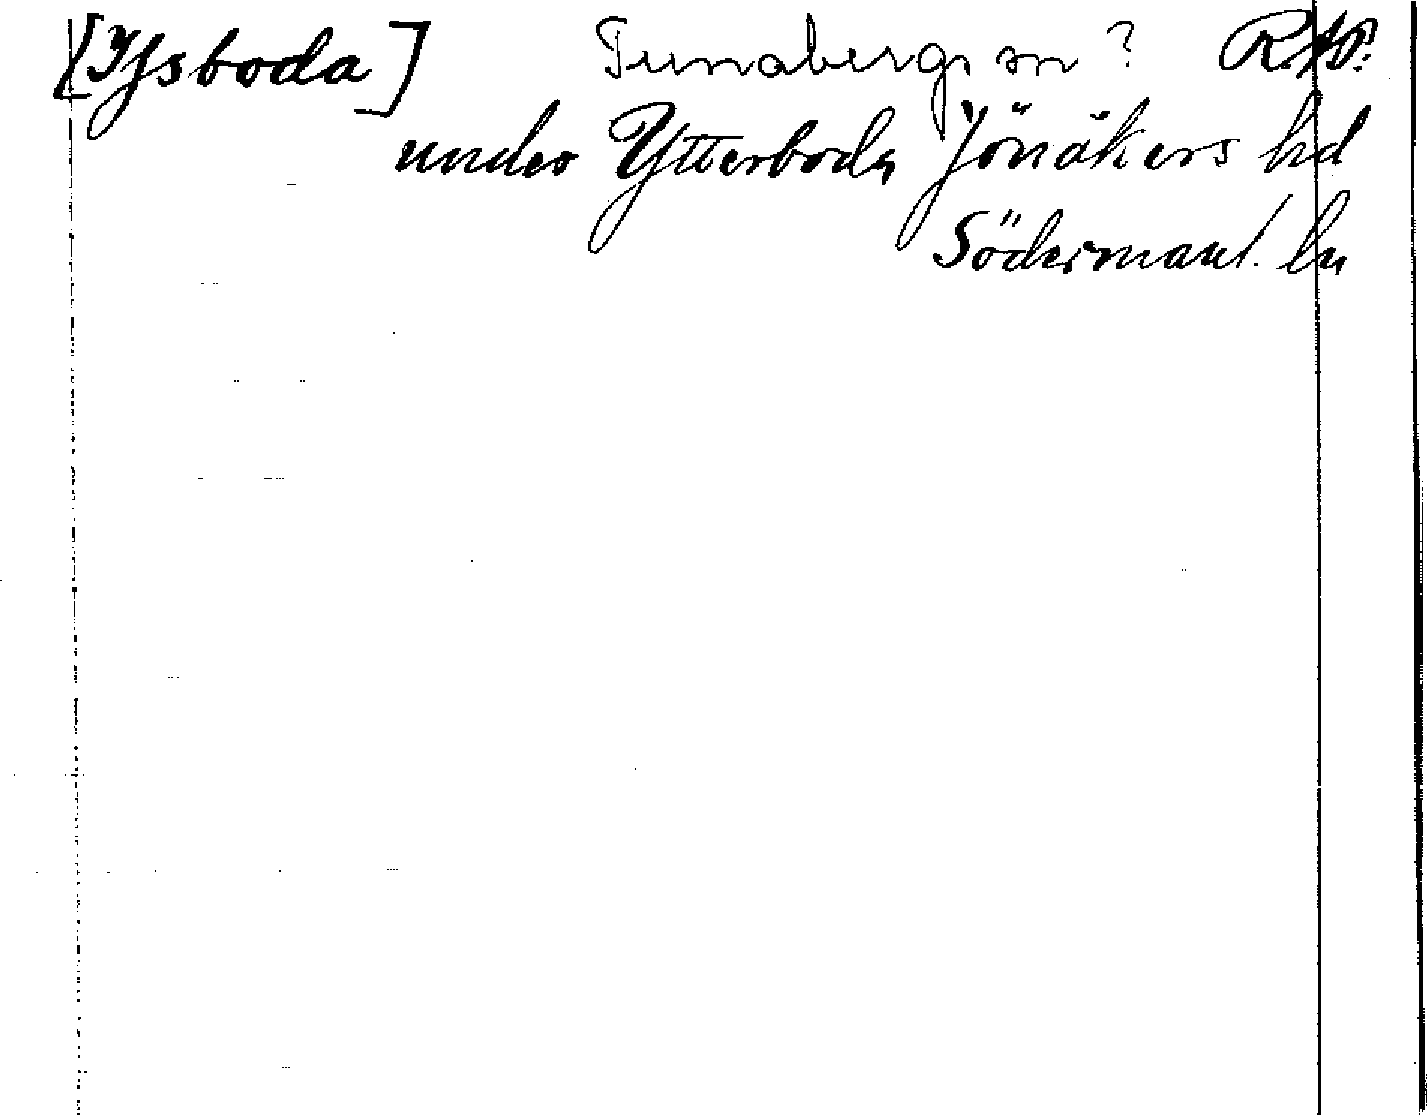 [Ysboda] Tunabergs sn?
under Ytterboda Jönåkers hd
Södermanl. ln